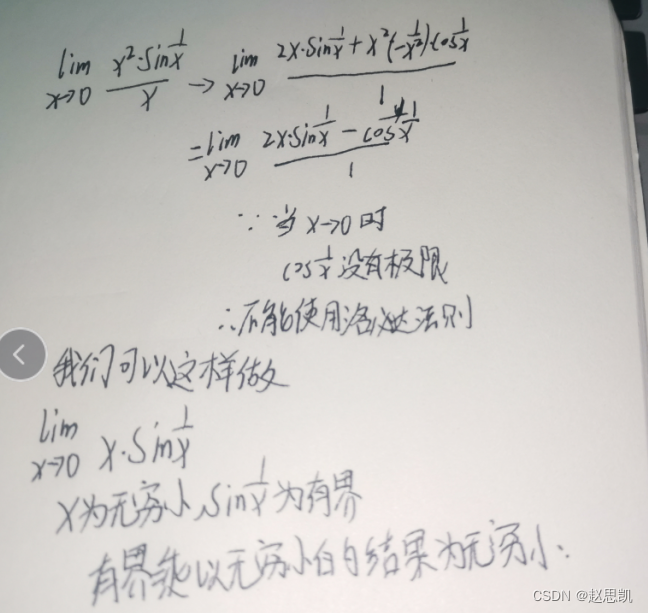 lim x→0 x²·sin 1/x / x → lim x→0 2x·sin 1/x + x²(-1/x²)·cos 1/x / 1
= lim x→0 2x·sin 1/x - cos 1/x / 1
∵ 当 x→0 时
cos 1/x 没有极限
∴ 不能使用洛必达法则
我们可以这样做
lim x→0 x·sin 1/x
x为无穷小,sin 1/x 为有界
有界乘以无穷小的结果为无穷小.
CSDN @赵思凯